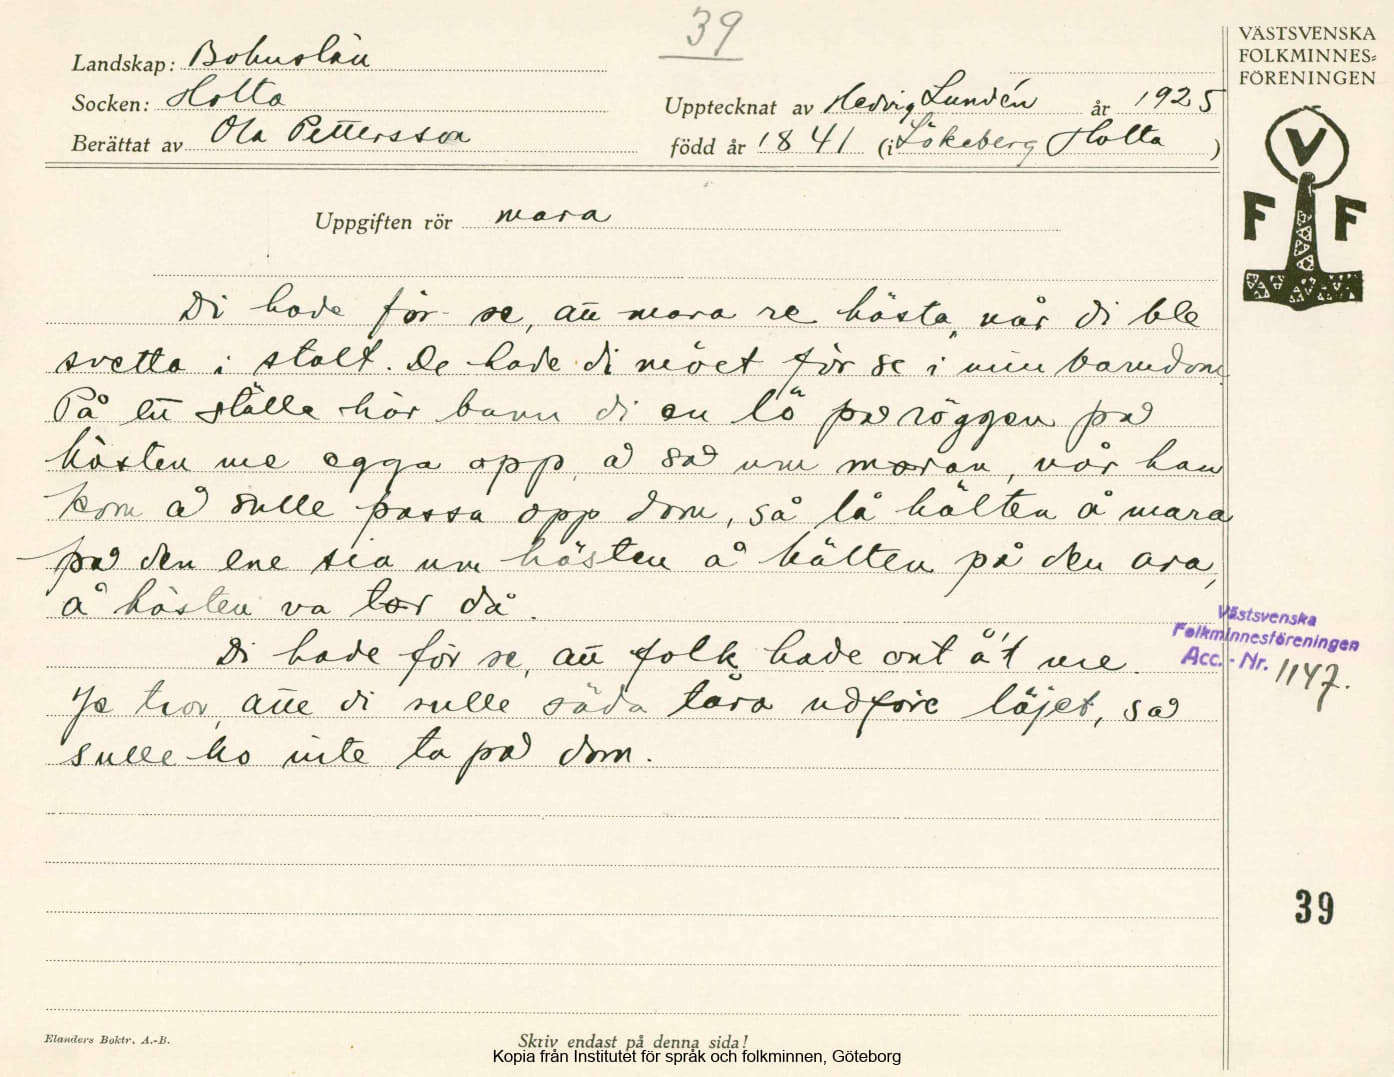 39
VÄSTSVENSKA
FOLKMINNES=
FÖRENINGEN
Landskap: Bohuslän
Socken: Holta
Upptecknat av Hedvig Lundén år 1925
Berättat av Ola Pettersson
född år 1841 (i Lökeberg Holta)
V
F F
Uppgiften rör mara
Di hade för se, att mara re hästa, når di ble
svetta i stalt. De hade di möet för se i min barndom.
På ett ställe här bann di en lö på röggen på
hästen me egga opp, å så um moran, når han
kom å sulle passa opp dom, så lå hälten å mara
på den ene sia um hästen å hälten på den ara,
å hästen va tor då.
Di hade för se, att folk hade ont å't me.
Ja tror, atte di sulle säda tåra udföre löjet, så
sulle ho inte ta på dom.
Västsvenska
Folkminnesföreningen
Acc. - Nr. 1147.
39
Elanders Boktr. A.-B.
Skriv endast på denna sida!
Kopia från Institutet för språk och folkminnen, Göteborg